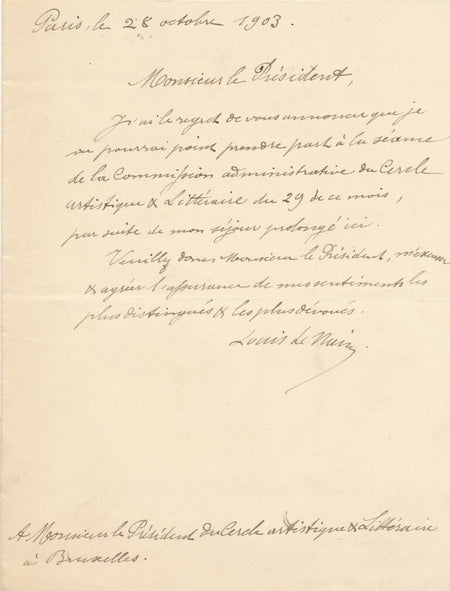 Paris, le 28 octobre 1903.
Monsieur le Président,
J'ai le regret de vous annoncer que je
ne pourrai point prendre part à la séance
de la Commission administrative du Cercle
artistique & Littéraire du 29 de ce mois,
par suite de mon séjour prolongé ici.
Veuillez donc, Monsieur le Président, m'excuser
& agréer l'assurance de mes sentiments les
plus distingués & les plus dévoués.
Louis de
A Monsieur le Président du Cercle artistique & Littéraire
à Bruxelles.